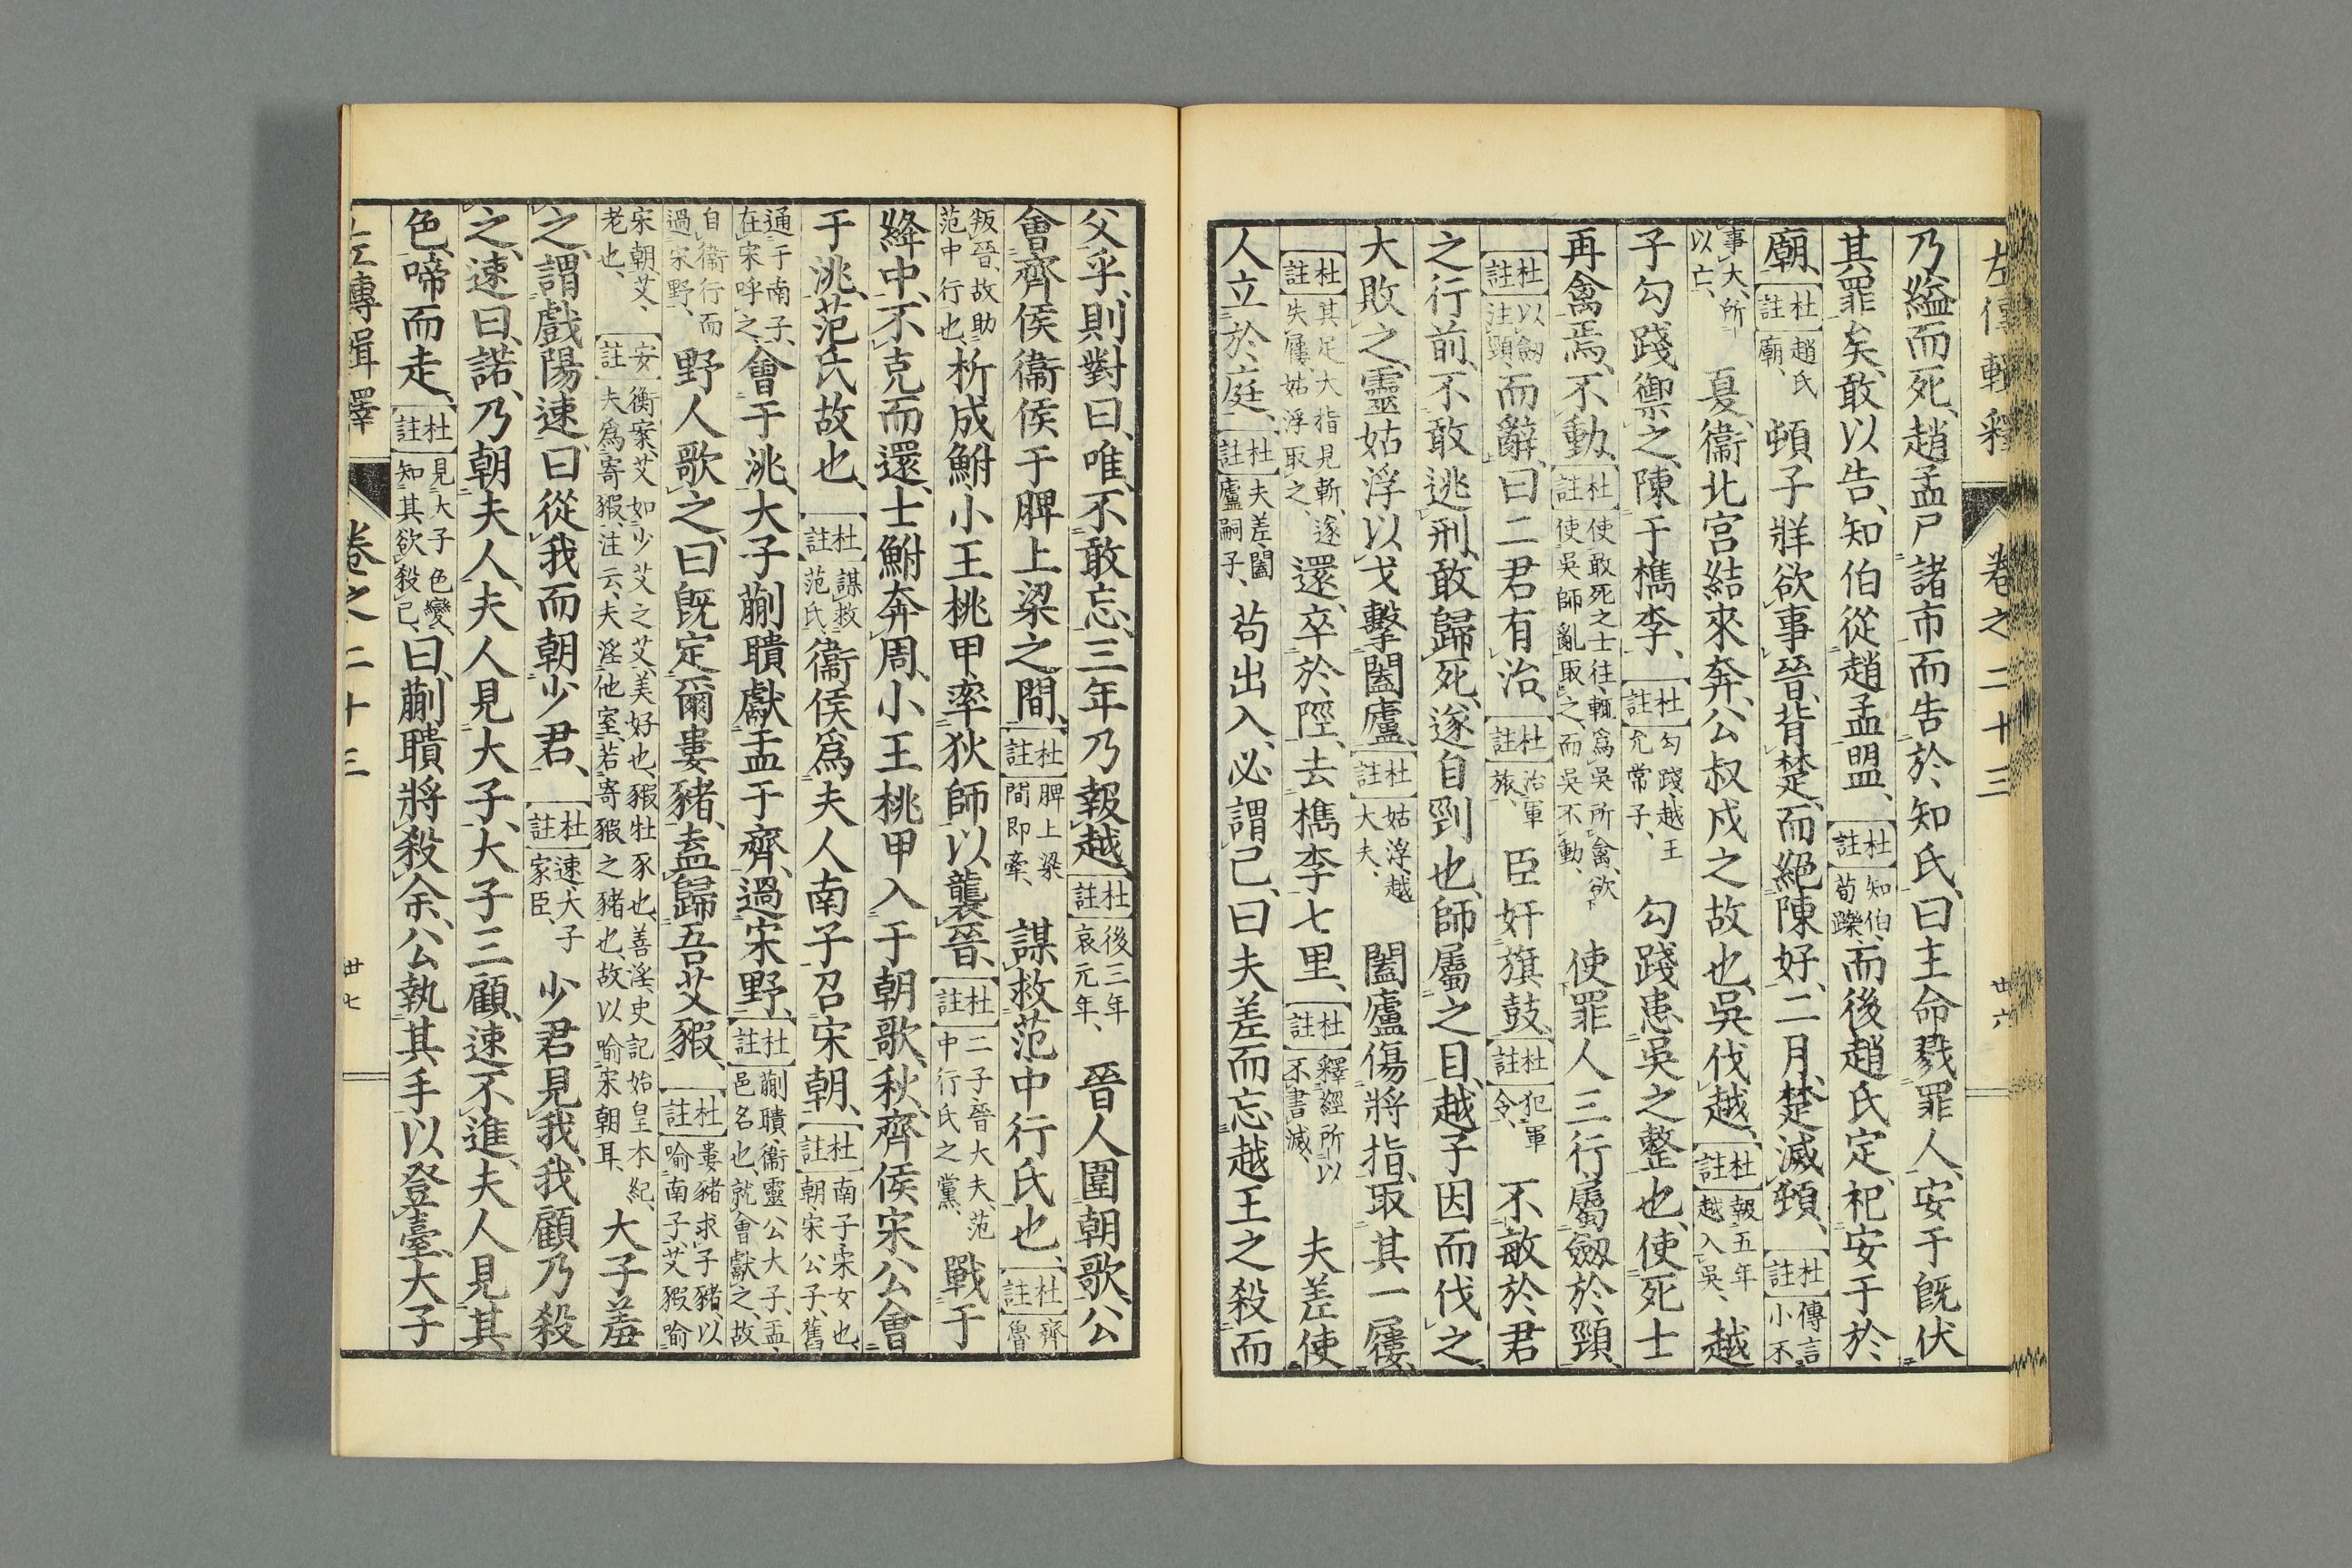 左傳輯釋 卷之二十三 廿六
乃縊而死、趙孟尸諸市、而告於知氏、曰主命戮罪人、安于既伏
其罪矣、敢以告、知伯從趙孟盟、杜註知伯、荀躒、而後趙氏定、祀安于於
廟、杜註趙氏廟、頓子牂欲事晉、背楚、而絕陳好、二月、楚滅頓、杜註傳言小不
事大、所以亡、夏、衞北宮結來奔、公叔戌之故也、吳伐越、杜註報五年越入吳、越
子勾踐禦之、陳于檇李、杜註勾踐、越王允常子、勾踐患吳之整也、使死士
再禽焉、不動、杜註使敢死之士往、輒爲吳所禽、欲使吳師亂取之、而吳不動、使罪人三行、屬劔於頸、
杜註以劔注頸、而辭、曰二君有治、杜註治軍旅、臣奸旗鼓、杜註犯軍令、不敏於君
之行前、不敢逃刑、敢歸死、遂自剄也、師屬之目、越子因而伐之、
大敗之、靈姑浮以戈擊闔廬、杜註姑浮、越大夫、闔廬傷將指、取其一屨、
杜註其足大指見斬、遂失屨、姑浮取之、還、卒於陘、去檇李七里、杜註釋經所以不書滅、夫差使
人立於庭、杜註夫差、闔廬嗣子、苟出入、必謂己、曰夫差而忘越王之殺而
父乎、則對曰、唯、不敢忘、三年乃報越、杜註後三年、哀元年、晉人圍朝歌、公
會齊侯衞侯于脾上梁之間、杜註脾上梁間即牽、謀救范中行氏也、杜註齊魯
叛晉、故助范中行也、析成鮒、小王桃甲率狄師以襲晉、杜註二子、晉大夫、范中行氏之黨、戰于
絳中、不克而還、士鮒奔周、小王桃甲入于朝歌、秋、齊侯宋公會
于洮、范氏故也、杜註謀救范氏、衞侯爲夫人南子召宋朝、杜註南子、宋女也、朝、宋公子、舊
通于南子、在宋呼之、會于洮、大子蒯聵獻盂于齊、過宋野、杜註蒯聵、衞靈公大子、盂、邑名也、就會獻之、故
自衞行而過宋野、野人歌之、曰既定爾婁豬、盍歸吾艾豭、杜註婁豬、求子豬、以喻南子、艾豭喻
宋朝、艾、老也、安註衡案、艾如少艾之艾、美好也、豭、牡豕也、善淫、史記始皇本紀、夫爲寄豭、注云、夫淫他室、若寄豭之豬也、故以喻宋朝耳、大子羞
之、謂戲陽速、曰從我而朝少君、杜註速、大子家臣、少君見我、我顧、乃殺
之、速曰、諾、乃朝夫人、夫人見大子、大子三顧、速不進、夫人見其
色、啼而走、杜註見大子色變、知其欲殺己、曰、蒯聵將殺余、公執其手以登臺、大子
左傳輯釋 卷之二十三 廿七